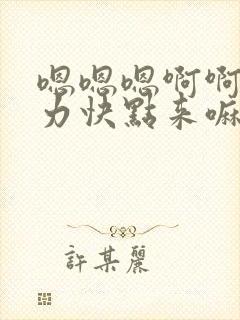 嗯嗯嗯啊啊
力快點来嘛
許某麗